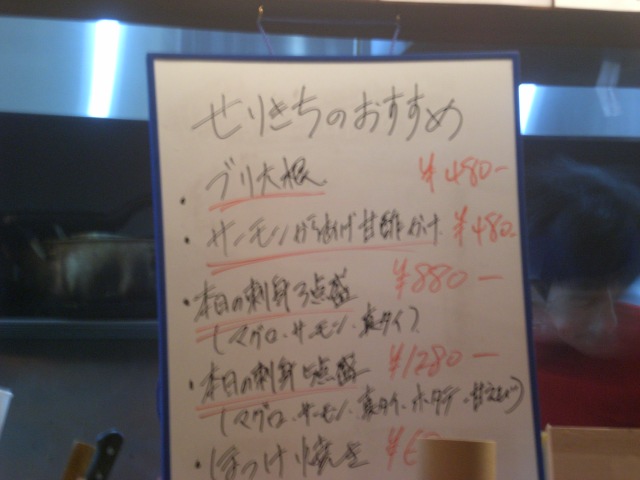 せりきちのおすすめ
・ブリ大根 ¥480-
・サーモンから揚げ甘酢がけ ¥480-
・本日の刺身3点盛 ¥880-
(マグロ・サーモン・真タイ)
・本日の刺身5点盛 ¥1280-
(マグロ・サーモン・真タイ・ホタテ・甘えび)
・ほっけ焼き ¥6